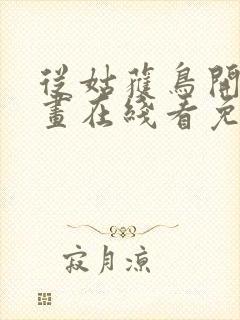 從姑獲鳥開
畫在綫看免
寂月凉